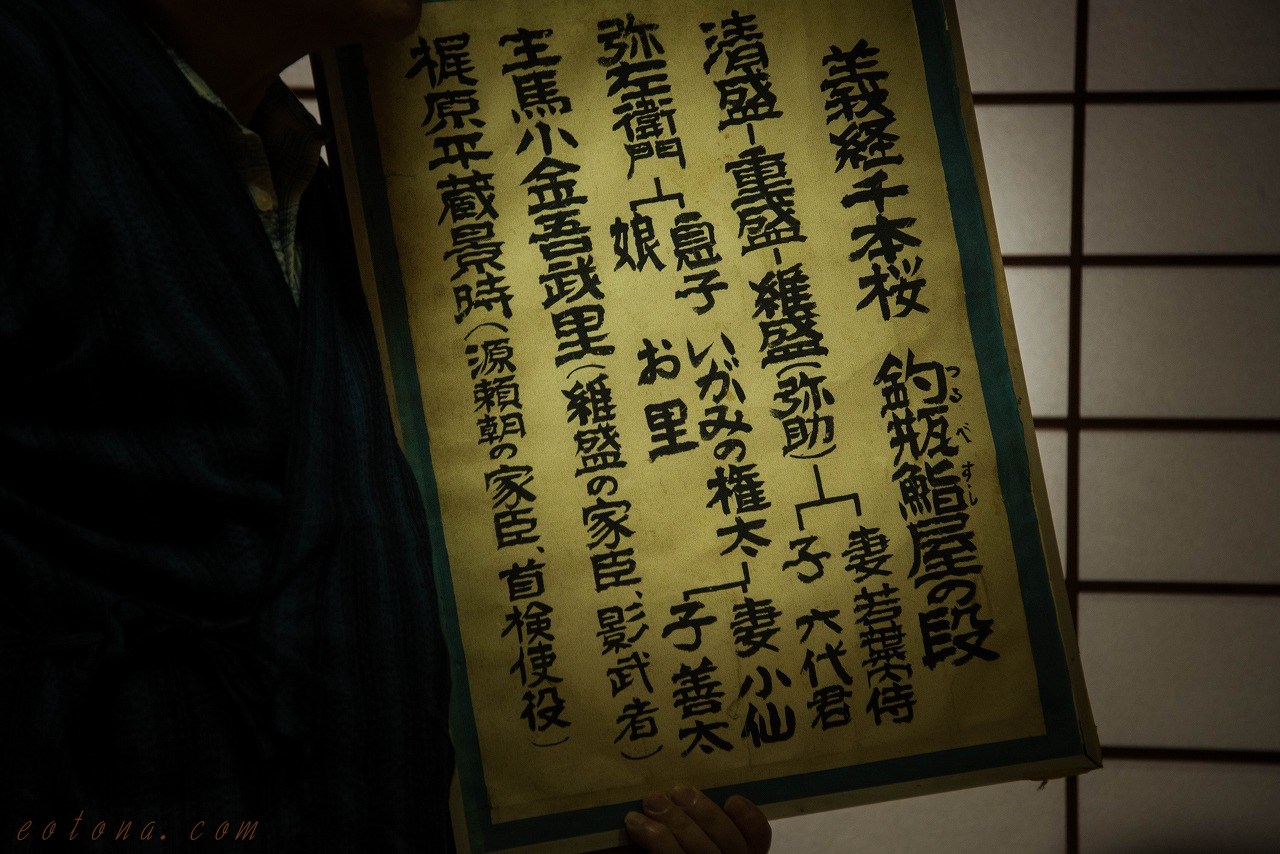 義経千本桜
釣瓶鮨屋の段
つるべすし
清盛ー重盛ー維盛(弥助)
妻 若葉内侍
子 六代君
弥左衛門
息子 いがみの権太
妻 小仙
子 善太
娘 お里
主馬小金吾武里(維盛の家臣、影武者)
梶原平蔵景時(源頼朝の家臣、首検使役)
eotona.com